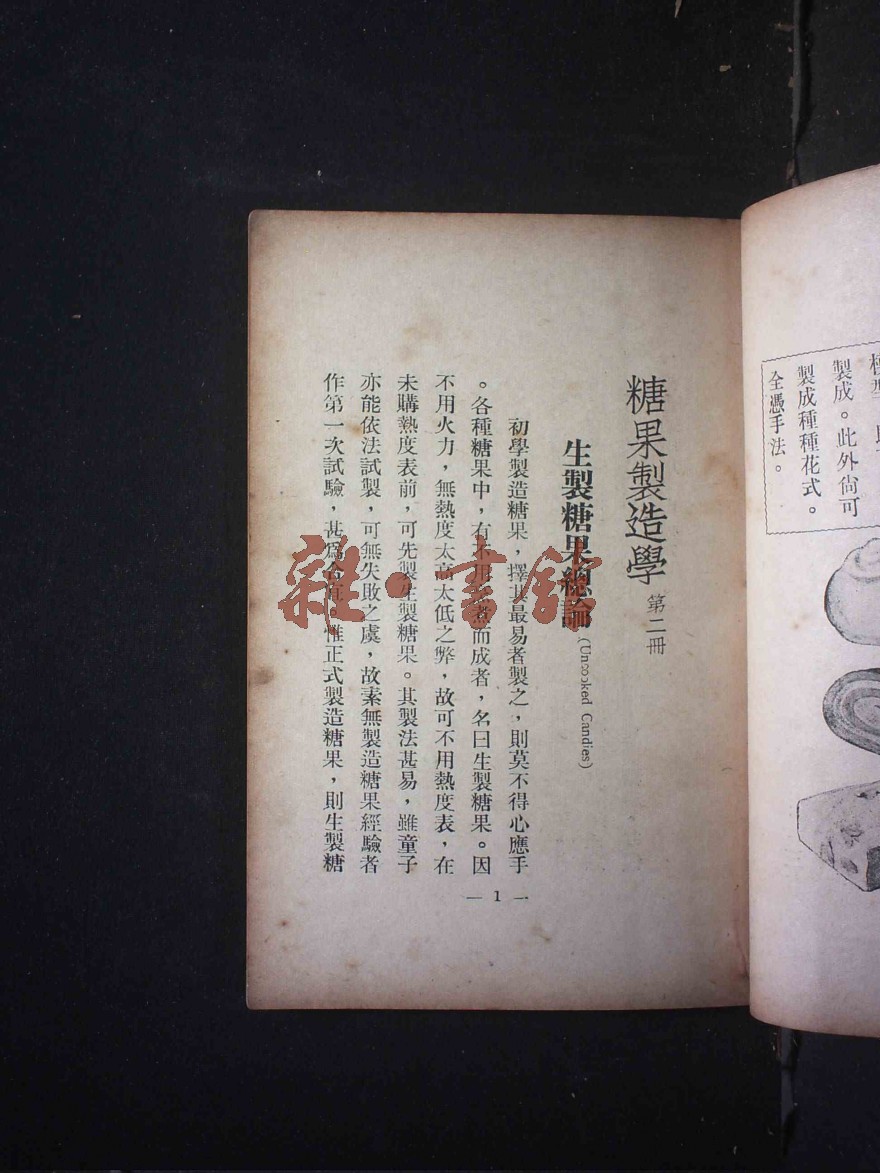 製成。此外尙可
製成種種花式。
全憑手法。
糖果製造學 第二冊
生製糖果總論 (Uncooked Candies)
初學製造糖果，擇其最易者製之，則莫不得心應手
。各種糖果中，有不用煮而成者，名曰生製糖果。因
不用火力，無熱度太高太低之弊，故可不用熱度表，在
未購熱度表前，可先製生製糖果。其製法甚易，雖童子
亦能依法試製，可無失敗之虞，故素無製造糖果經驗者
作第一次試驗，甚爲合宜。惟正式製造糖果，則生製糖
— 1 —
雜·書館